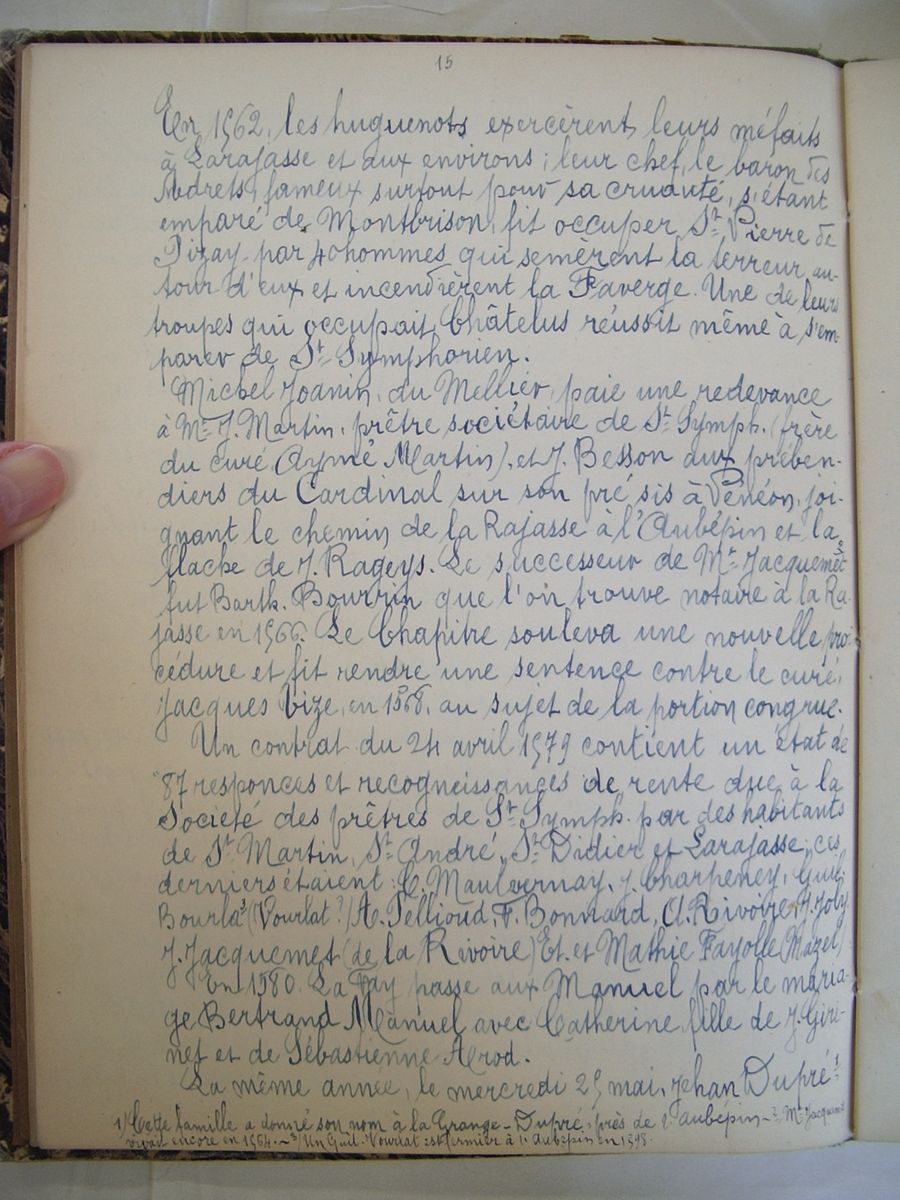 15
En 1562, les huguenots exercèrent leurs méfaits
à Larajasse et aux environs; leur chef, le baron des
Adrets, fameux surtout pour sa cruauté, s'étant
emparé de Montbrison, fit occuper St Pierre de
Pizay par 40 hommes qui semèrent la terreur au-
tour d'eux et incendièrent la Faverge. Une de leurs
troupes qui occupait Châtelus réussit même à s'em-
parer de St Symphorien.
Michel Joanin, du Mellier, paie une redevance
à Mre J. Martin, prêtre sociétaire de St Symph. (frère
du curé Aymé Martin), et J. Besson aux prében-
diers du Cardinal sur son pré sis à Pénéon, joi-
gnant le chemin de la Rajasse à l'Aubépin et la
flache de J. Rageys. Le successeur de Mr Jacquemet 2
fut Barth. Bourrin que l'on trouve notaire à la Ra-
jasse en 1566. Le Chapitre souleva une nouvelle pro-
cédure et fit rendre une sentence contre le curé,
Jacques Vize, en 1568, au sujet de la portion congrue.
Un contrat du 24 avril 1579 contient un état de
"87 responces et recogneissances de rente due à la
Société des prêtres de St Symph. par des habitants
de St Martin, St André, St Didier et Larajasse; ces
derniers étaient: C. Maulvernay, J. Charpeney, Guil.
Bourla 3 (Vourlat?) A. Pellioud, F. Bonnard, Cl. Rivoire, J. Joly
J. Jacquemet (de la Rivoire) Et. et Mathie Fayolle (Mazel)
En 1580. La Fay passe aux Manuel par le maria-
ge Bertrand Manuel avec Catherine fille de J. Giri-
net et de Sébastienne Arod.
La même année, le mercredi 25 mai, Jehan Dupré 1
1) Cette famille a donné son nom à la Grange-Dupré, près de l'Aubépin - 2 Mr Jacquemet
vivait encore en 1564. - 3) Un Guil. Vourlat est fermier à l'Aubépin en 1598.